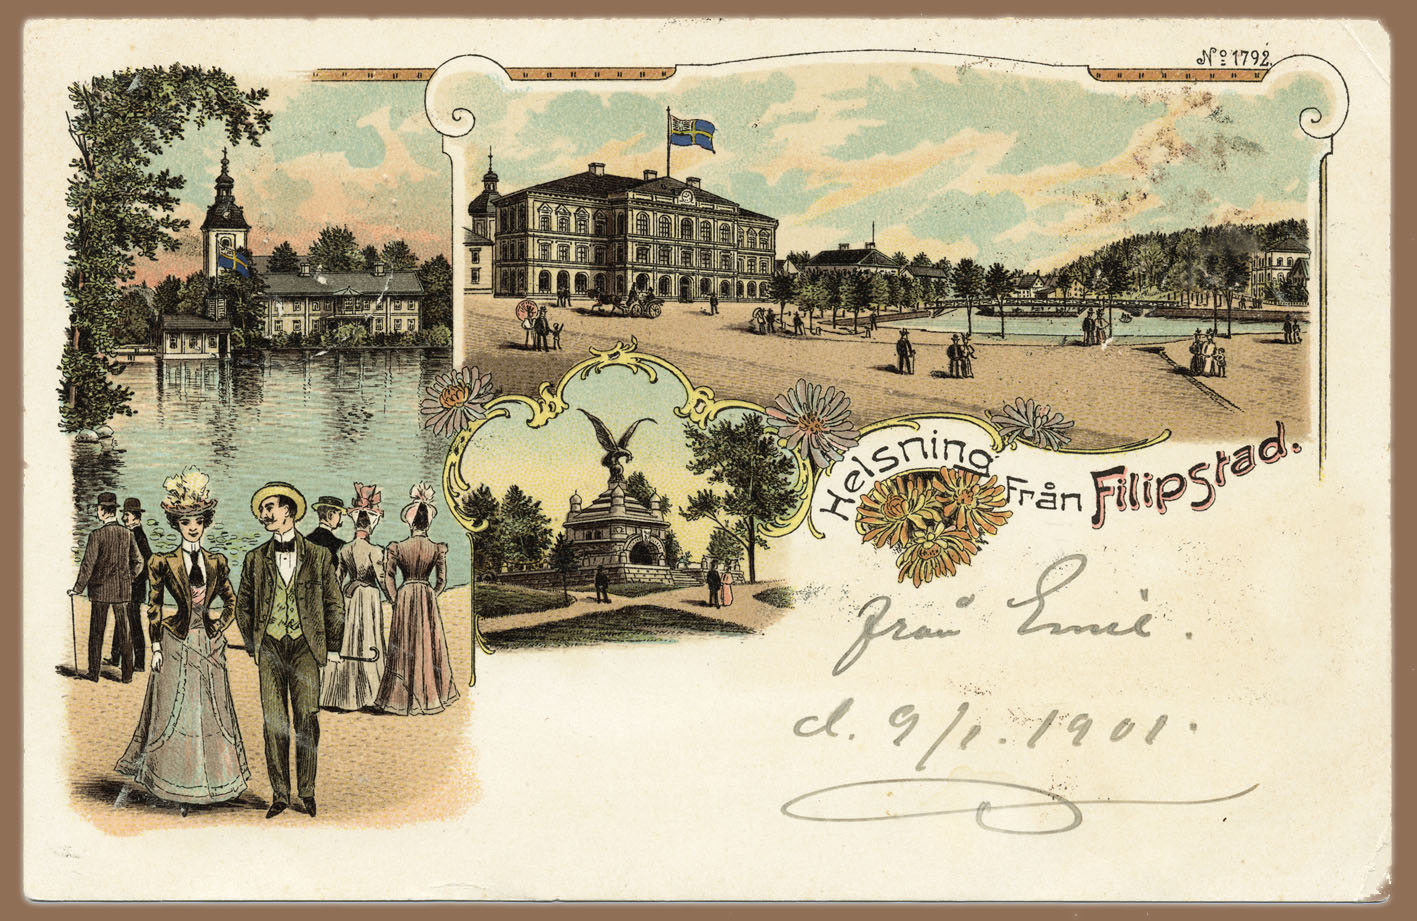 Nº 1792.
Helsning Från Filipstad.
från Emil.
d. 9/1. 1901.